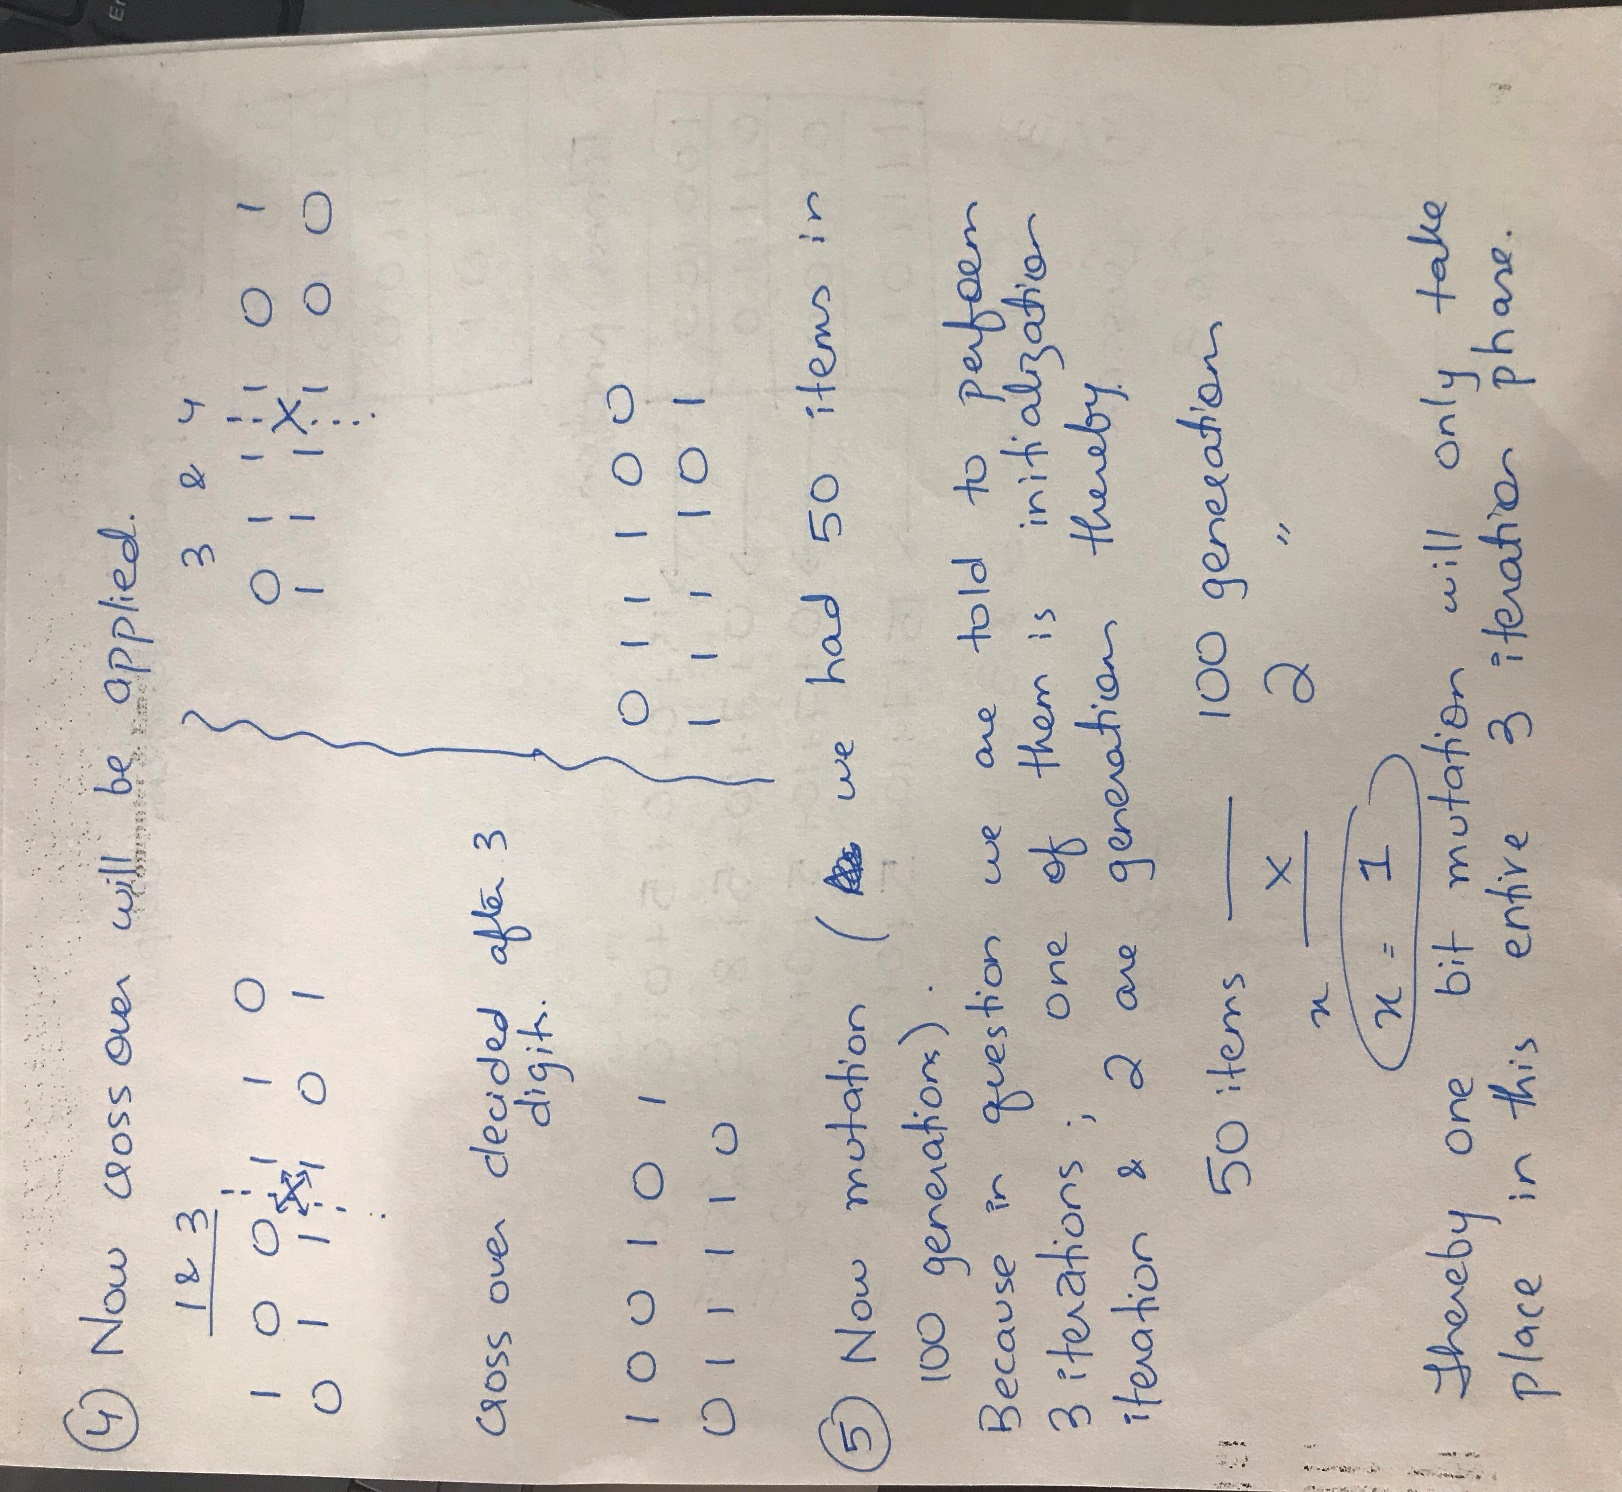 ④ Now cross over will be applied.
1 & 3
1 0 0 1 1 0
0 1 1 1 0 1
3 & 4
0 1 1 1 0 1
1 1 1 1 0 0
cross over decided after 3
digits.
1 0 0 1 0 1
0 1 1 1 1 0
0 1 1 1 0 0
1 1 1 1 0 1
⑤ Now mutation ( we had 50 items in
100 generations).
Because in question we are told to perform
3 iterations ; one of them is initialization
iteration & 2 are generation thereby
50 items — 100 generation
x X 2 "
x = 1
Thereby one bit mutation will only take
place in this entire 3 iteration phase.